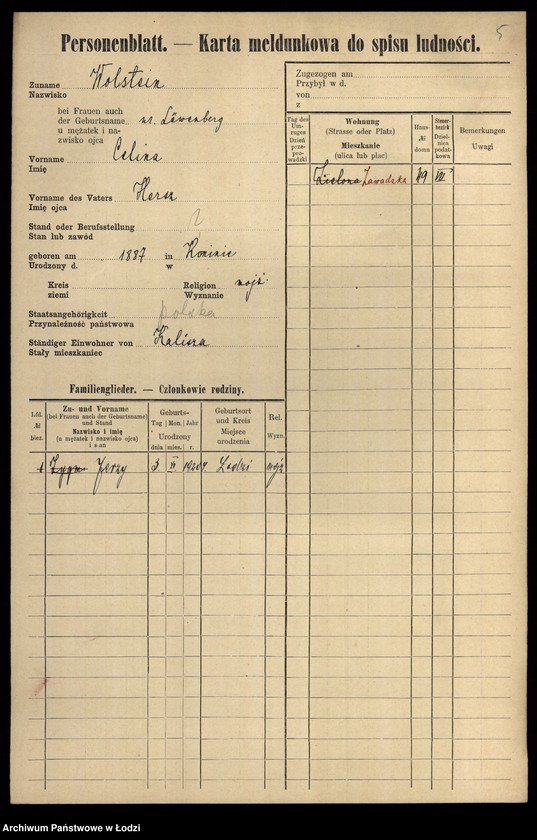 5
Personenblatt. — Karta meldunkowa do spisu ludności.
Zuname Wolstein
Nazwisko
bei Frauen auch
der Geburtsname
u mężatek i na-
zwisko ojca
Löwenberg
Vorname Celina
Imię
Vorname des Vaters Hersz
Imię ojca
Stand oder Berufsstellung
Stan lub zawód
geboren am 1887 in Koninie
Urodzony d. w
Kreis Religion mojż
ziemi Wyznanie
Staatsangehörigkeit polska
Przynależność państwowa
Ständiger Einwohner von Kalisza
Stały mieszkaniec
Familienglieder. — Członkowie rodziny.
Lfd. № bież.
Zu- und Vorname
(bei Frauen auch der Geburtsname)
und Stand
Nazwisko i imię
(u mężatek i nazwisko ojca)
i s.an
Geburts-
Tag Mon. Jahr
Urodzony
dnia mies. r.
Geburtsort
und Kreis
Miejsce
urodzenia
Rel.
Wyzn.
1 Jerzy 3 VI Łodzi mojż
Zugezogen am
Przybył w d.
von
z
Tag des
Um-
zuges
Dzień
prze-
prowadzki
Wohnung
(Strasse oder Platz)
Mieszkanie
(ulica lub plac)
Haus-
№
domu
Steuer-
bezirk
Dziel-
nica
podat-
kowa
Bemerkungen
Uwagi
Zielona Zawadzka 19 VII
Archiwum Państwowe w Łodzi